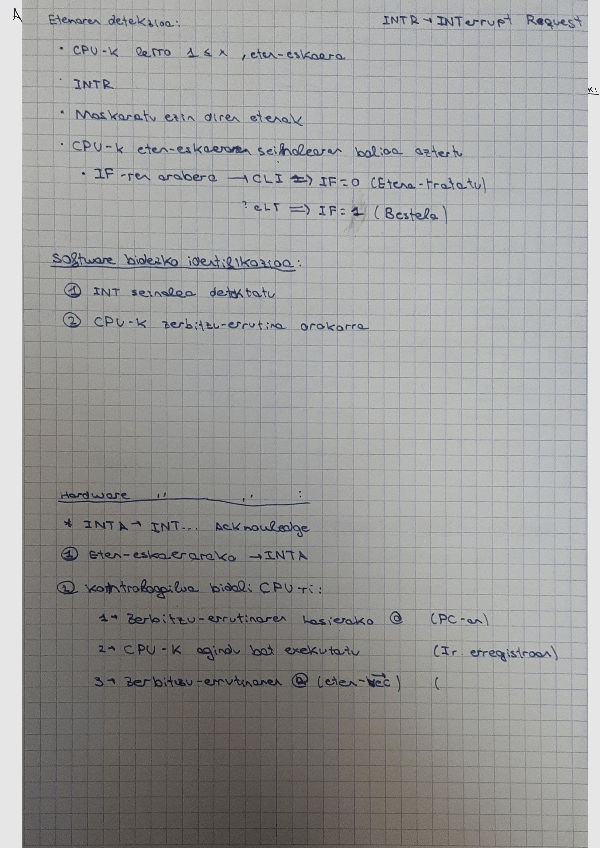 Etenaren detekzioa: INTR → INTerrupt Request
• CPU-k lerro 1 ≤ x, eten-eskaera
• INTR
• Maskaratu ezin diren etenak
• CPU-k eten-eskaeraren seinalearen balioa aztertu
• IF-ren arabera → CLI => IF=0 (Etena-tratatu)
=> IF=1 (Bestela)
Software bidezko identifikazioa:
① INT seinalea detektatu
② CPU-k zerbitzu-errutina orokorra
Hardware ,, ,, :
* INTA → INT... Acknowledge
① Eten-eskaerarako → INTA
② kontrolagailua bidali CPU-ri:
1→ Zerbitzu-errutinaren hasierako @ (PC-an)
2→ CPU-k agindu bat exekutatu (Ir erregistroan)
3→ Zerbitzu-errutinaren @ (eten-vec) (